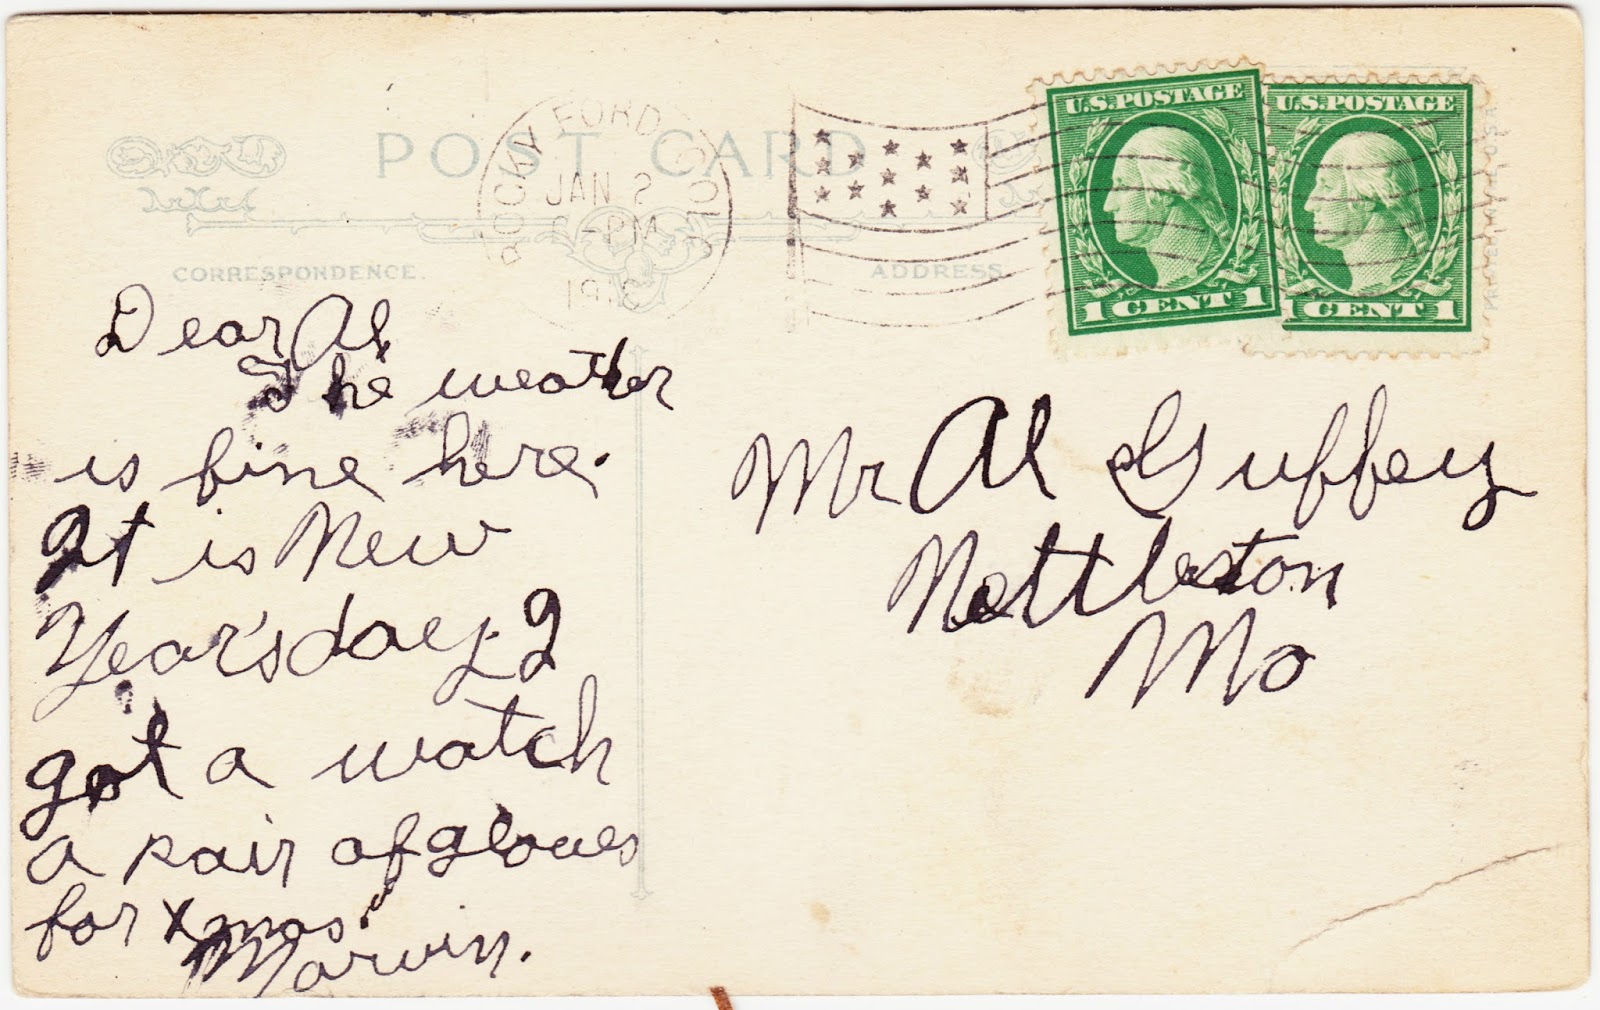 POST CARD
ROCKY FORD COLO
JAN 2
-PM
CORRESPONDENCE.
ADDRESS
U.S.POSTAGE
1 CENT 1
U.S.POSTAGE
1 CENT 1
Dear Al
The weather
is fine here.
It is New
Year'sday. I
got a watch
a pair of gloves
for Xmas.
Marvin.
Mr Al Guffey
Nettleston
Mo